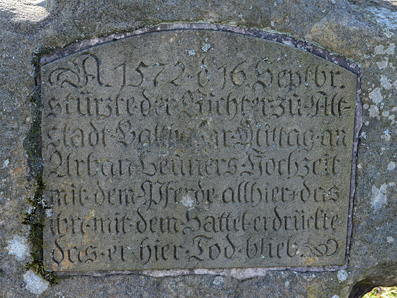 A. 1572. d 16 Septbr.
stürzte der Richter zu Alt-
stadt am Mittag an
Urban Heuners Hochzeit
mit dem Pferde allhier das
ihn mit dem Sattel erdrückte
das er hier Tod blieb.